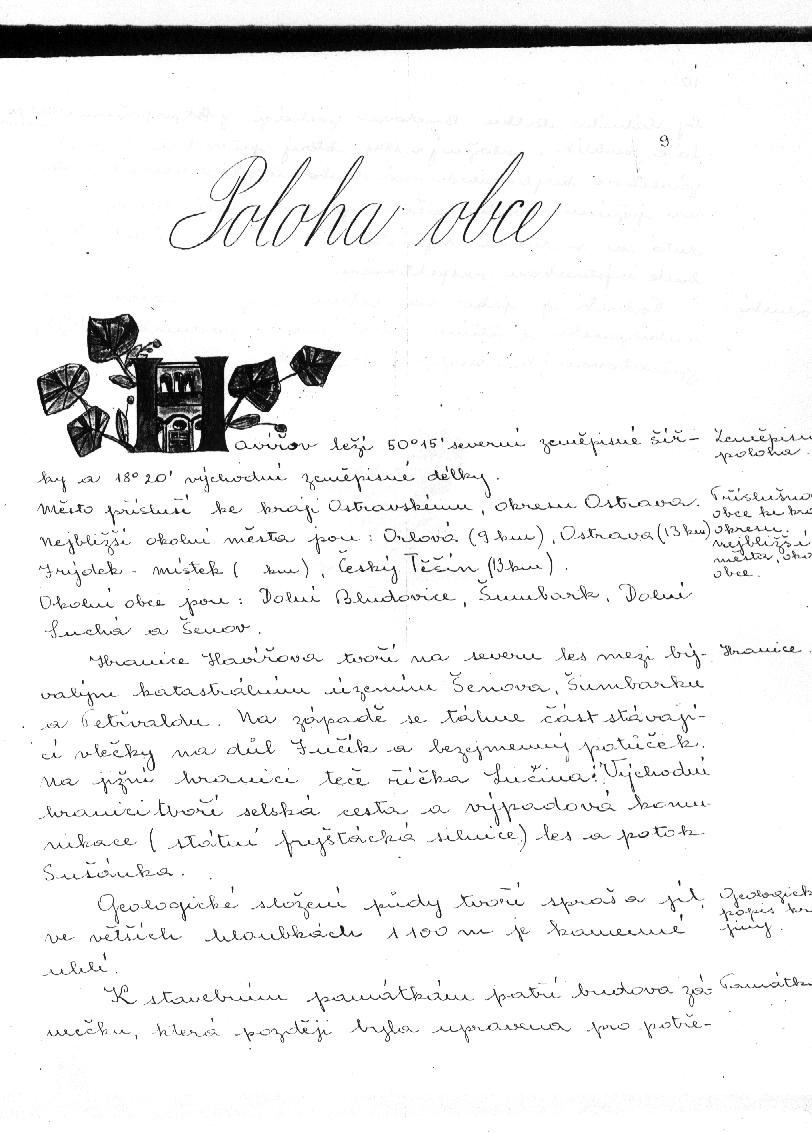 9
Poloha obce
Havířov leží 50°15' severní zeměpisné šíř-
ky a 18°20' východní zeměpisné délky.
Město přísluší ke kraji Ostravskému, okresu Ostrava.
Nejbližší okolní města jsou: Orlová (9 km), Ostrava (13 km)
Frýdek - místek ( km), Český Těšín (13 km).
Okolní obce jsou: Dolní Bludovice, Šumbark, Dolní
Suchá a Šenov.
Hranice Havířova tvoří na severu les mezi bý-
valým katastrálním územím Šenova, Šumbarku
a Petřvaldu. Na západě se táhne část stávají-
cí vlečky na důl Fučík a bezejmenný potůček.
Na jižní hranici teče říčka Lučina. Východní
hranici tvoří selská cesta a výpadová komu-
nikace (státní fryštácká silnice) les a potok
Sušánka.
Geologické složení půdy tvoří spraš a jíl,
ve větších hloubkách 1100 m je kamenné
uhlí.
K stavebním památkám patří budova zá-
mečku, která později byla upravena pro potře-
Zeměpisn
poloha.
Příslušno
obce ke kra
okresu.
nejbližší
města, oko
obce.
Hranice.
Geologick
popis kr
jiny.
Památk